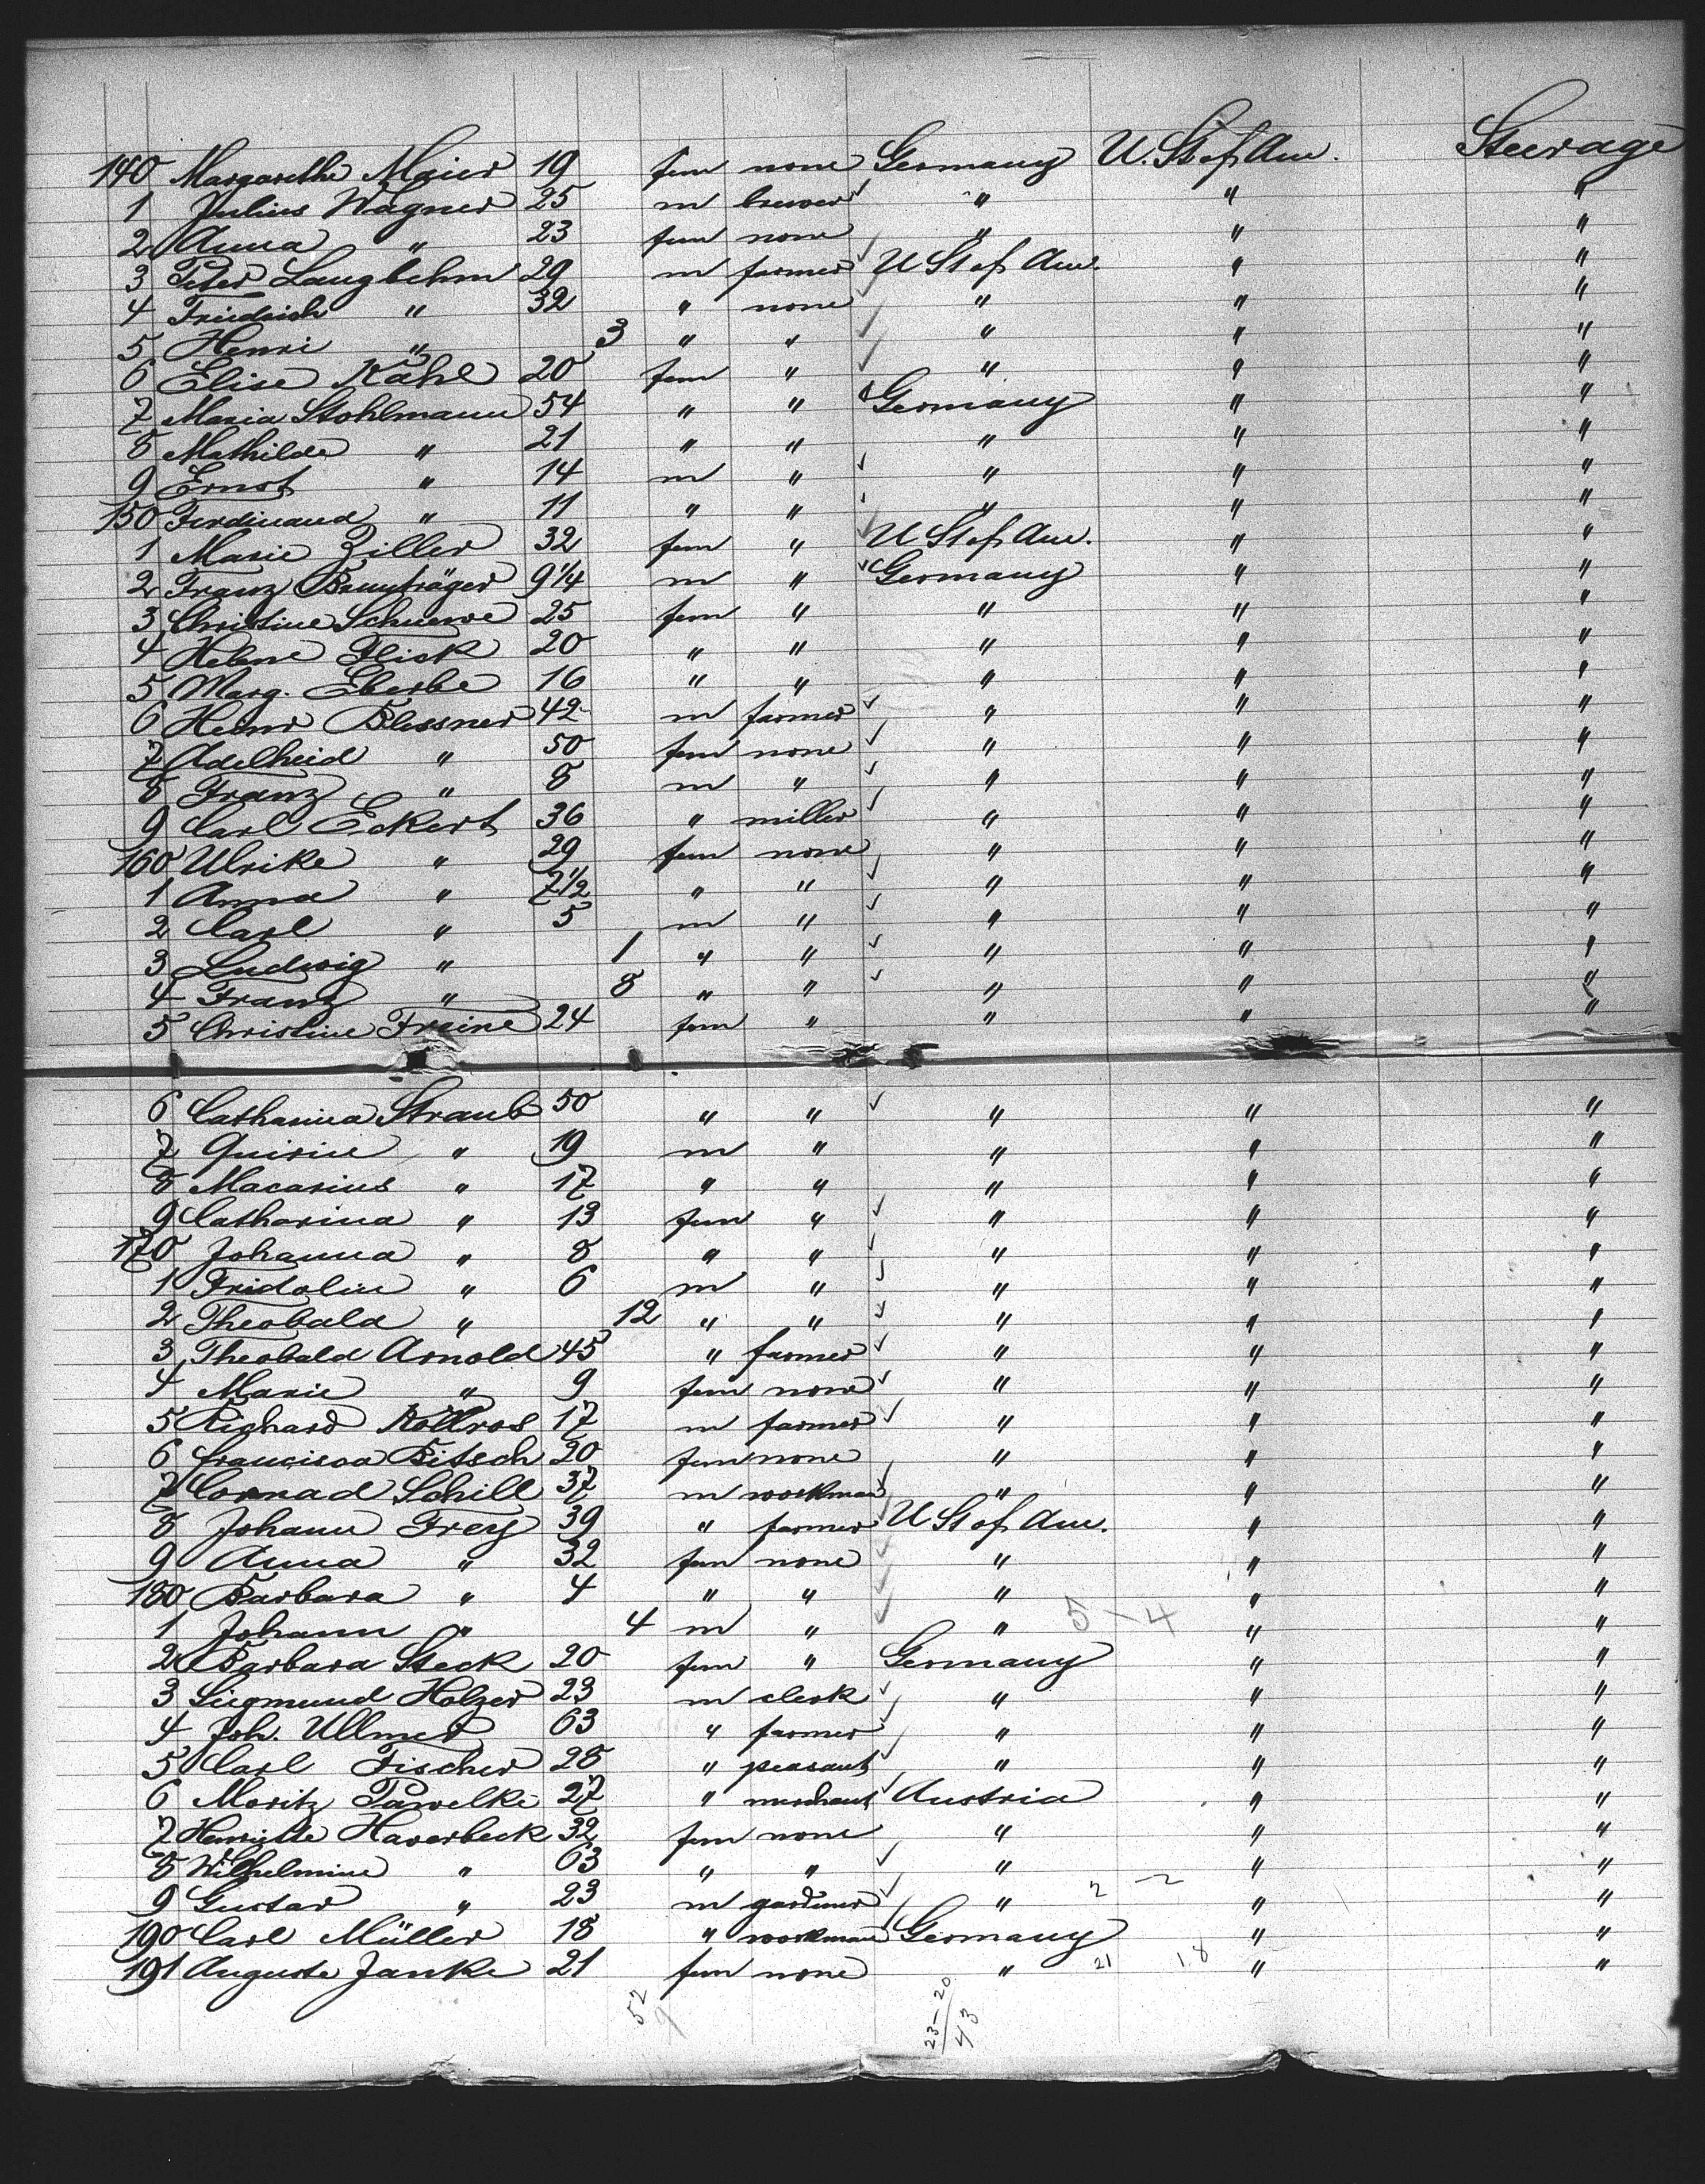 140 Margarethe Maier 19 fem none Germany U. St of Am. Steerage
1 Julius Wagner 25 m brewer " " "
2 Anna " 23 fem none " " "
3 Peter Langbehm 29 m farmer U St of Am. " "
4 Friedrich " 32 " none " " "
5 Henri " 3 " " " " "
6 Elise Kahl 20 fem " " " "
7 Maria Stohlmann 54 " " Germany " "
8 Mathilde " 21 " " " " "
9 Ernst " 14 m " " " "
150 Ferdinand " 11 " " " " "
1 Marie Ziller 32 fem " U St of Am. " "
2 Franz 9 1/4 m " Germany " "
3 Christine Schuewe 25 fem " " " "
4 Helene Flick 20 " " " " "
5 Marg. Eberbe 16 " " " " "
6 Heinr Blessner 42 m farmer " " "
7 Adelheid " 50 fem none " " "
8 Franz " 8 m " " " "
9 Carl Eckert 36 " miller " " "
160 Ulrike " 29 fem none " " "
1 Anna " 7 1/2 " " " " "
2 Carl " 5 m " " " "
3 Ludwig " 1 " " " " "
4 Franz " 8 " " " " "
5 Christine Freine 24 fem " " " "
6 Catharina Straub 50 " " " " "
7 Quirin " 19 m " " " "
8 Macarius " 17 " " " " "
9 Catharina " 13 fem " " " "
170 Johanna " 8 " " " " "
1 Fridolin " 6 m " " " "
2 Theobald " 12 " " " " "
3 Theobald Arnold 45 " farmer " " "
4 Marie " 9 fem none " " "
5 Richard Kollros 17 m farmer " " "
6 Francisca Bitsch 20 fem none " " "
7 Conrad Schill 37 m workman " " "
8 Johann Frey 39 " farmer U St of Am. " "
9 Anna " 32 fem none " " "
180 Barbara " 4 " " " " "
1 Johann " 4 m " " 5-4 " "
2 Barbara Steck 20 fem " Germany " "
3 Siegmund Holzer 23 m clerk " " "
4 Joh. Ullmer 63 " farmer " " "
5 Carl Fischer 28 " peasant " " "
6 Moritz Pawelke 27 " merchant Austria " "
7 Henriette Haverbeck 32 fem none " " "
8 Wilhelmine " 63 " " " " "
9 Gustav " 23 m gardener " 2 -2 " "
190 Carl Müller 18 " workman Germany " "
191 Auguste Janke 21 fem none " 21 18 " "
52
9
23-20
43